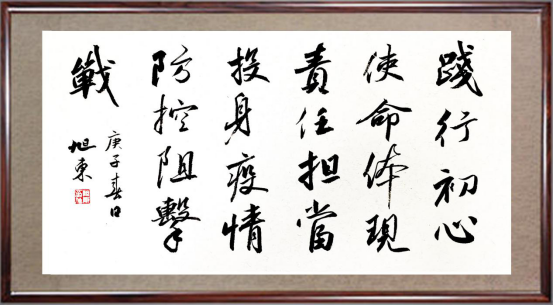 踐行初心
使命体現
責任担當
投身疫情
防控阻擊
戰
庚子春日
旭東